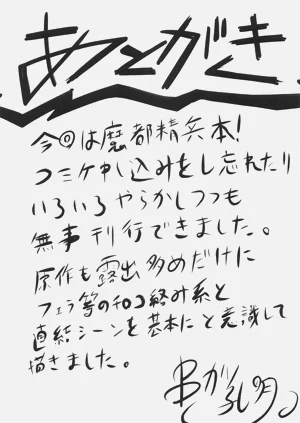 あとがき
今回は魔都精兵本！
コミケ申し込みをし忘れたり
いろいろやらかしつつも
無事刊行できました。
原作も露出多めだけに
フェラ等のチロコ絡み系と
直結シーンを基本にと意識して
描きました。